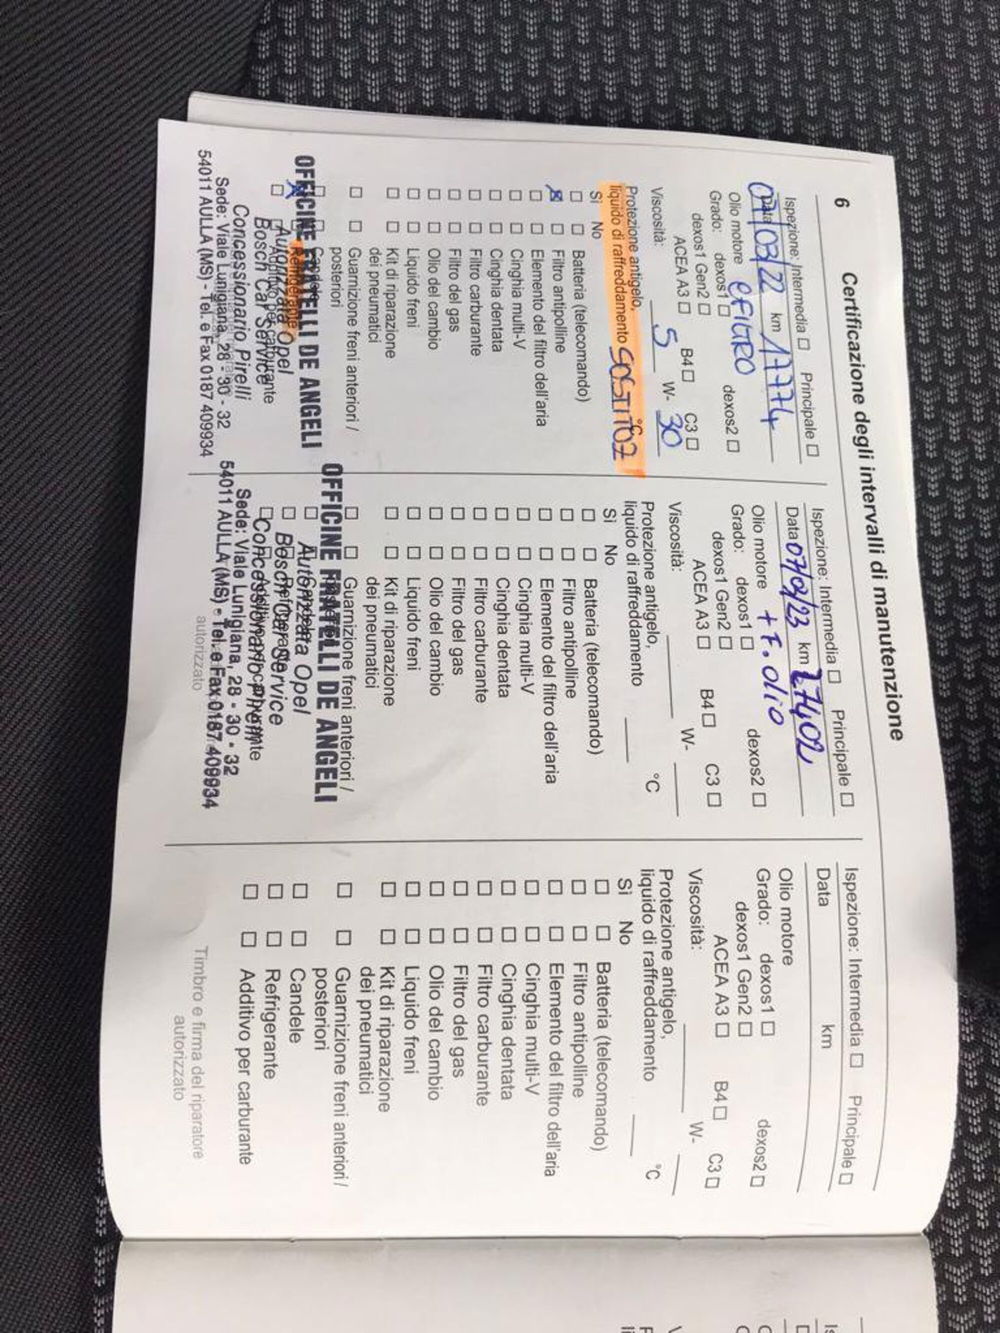 6
Certificazione degli intervalli di manutenzione
Ispezione: Intermedia ☐ Principale ☐
Data 07/03/22 km 17774
Olio motore e FILTRO
Grado: dexos1 ☐ dexos2 ☐
dexos1 Gen2 ☐
ACEA A3 ☐ B4 ☐ C3 ☐
Viscosità: 5 W- 30
Protezione antigelo,
liquido di raffreddamento SOSTIT02 °C
Sì No
☐ ☐ Batteria (telecomando)
☒ ☐ Filtro antipolline
☐ ☐ Elemento del filtro dell'aria
☐ ☐ Cinghia multi-V
☐ ☐ Cinghia dentata
☐ ☐ Filtro carburante
☐ ☐ Filtro del gas
☐ ☐ Olio del cambio
☐ ☐ Liquido freni
☐ ☐ Kit di riparazione
dei pneumatici
☐ ☐ Guarnizione freni anteriori /
posteriori
Refrigerante
OFFICINE FRATELLI DE ANGELI
Autorizzata Opel
Bosch Car Service
Concessionario Pirelli
Sede: Viale Lunigiana, 28 - 30 - 32
54011 AULLA (MS) - Tel. e Fax 0187 409934
Ispezione: Intermedia ☐ Principale ☐
Data 07/03/23 km 27402
Olio motore + F. olio
Grado: dexos1 ☐ dexos2 ☐
dexos1 Gen2 ☐
ACEA A3 ☐ B4 ☐ C3 ☐
Viscosità: W-
Protezione antigelo,
liquido di raffreddamento °C
Sì No
☐ ☐ Batteria (telecomando)
☐ ☐ Filtro antipolline
☐ ☐ Elemento del filtro dell'aria
☐ ☐ Cinghia multi-V
☐ ☐ Cinghia dentata
☐ ☐ Filtro carburante
☐ ☐ Filtro del gas
☐ ☐ Olio del cambio
☐ ☐ Liquido freni
☐ ☐ Kit di riparazione
dei pneumatici
☐ ☐ Guarnizione freni anteriori /
OFFICINE FRATELLI DE ANGELI
Autorizzata Opel
Bosch Car Service
Concessionario Pirelli
Sede: Viale Lunigiana, 28 - 30 - 32
54011 AULLA (MS) - Tel. e Fax 0187 409934
autorizzato
Ispezione: Intermedia ☐ Principale ☐
Data km
Olio motore
Grado: dexos1 ☐ dexos2 ☐
dexos1 Gen2 ☐
ACEA A3 ☐ B4 ☐ C3 ☐
Viscosità: W-
Protezione antigelo,
liquido di raffreddamento °C
Sì No
☐ ☐ Batteria (telecomando)
☐ ☐ Filtro antipolline
☐ ☐ Elemento del filtro dell'aria
☐ ☐ Cinghia multi-V
☐ ☐ Cinghia dentata
☐ ☐ Filtro carburante
☐ ☐ Filtro del gas
☐ ☐ Olio del cambio
☐ ☐ Liquido freni
☐ ☐ Kit di riparazione
dei pneumatici
☐ ☐ Guarnizione freni anteriori /
posteriori
☐ ☐ Candele
☐ ☐ Refrigerante
☐ ☐ Additivo per carburante
Timbro e firma del riparatore
autorizzato